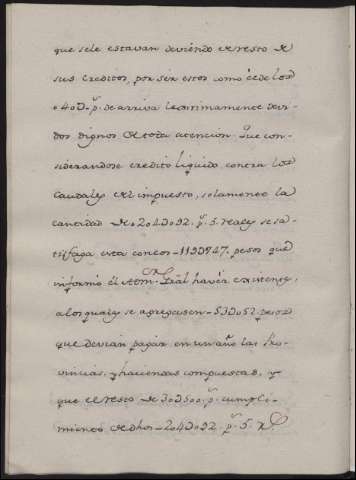 que se le estavan deviendo el resto de
sus creditos, por sér estos como el de los
40D p.^s de arriva lexitimamente devi-
dos dignos de toda atencion. Que con-
siderandose credito liquido contra los
Caudales del impuesto, solamente la
cantidad de 204D092 p.^s 5 reales se sa-
tisfaga esta con los 119D747 pesos que
informó el Adm.^or Gräl havér existentes,
a los quales se agregasen 53D052 pesos
que devian pagár en un año las Pro-
vincias, y haciendas compuestas, y
que el resto de 30D500 p.^s cumpli-
miento de dhos 204D092 p.^s 5 r.^s